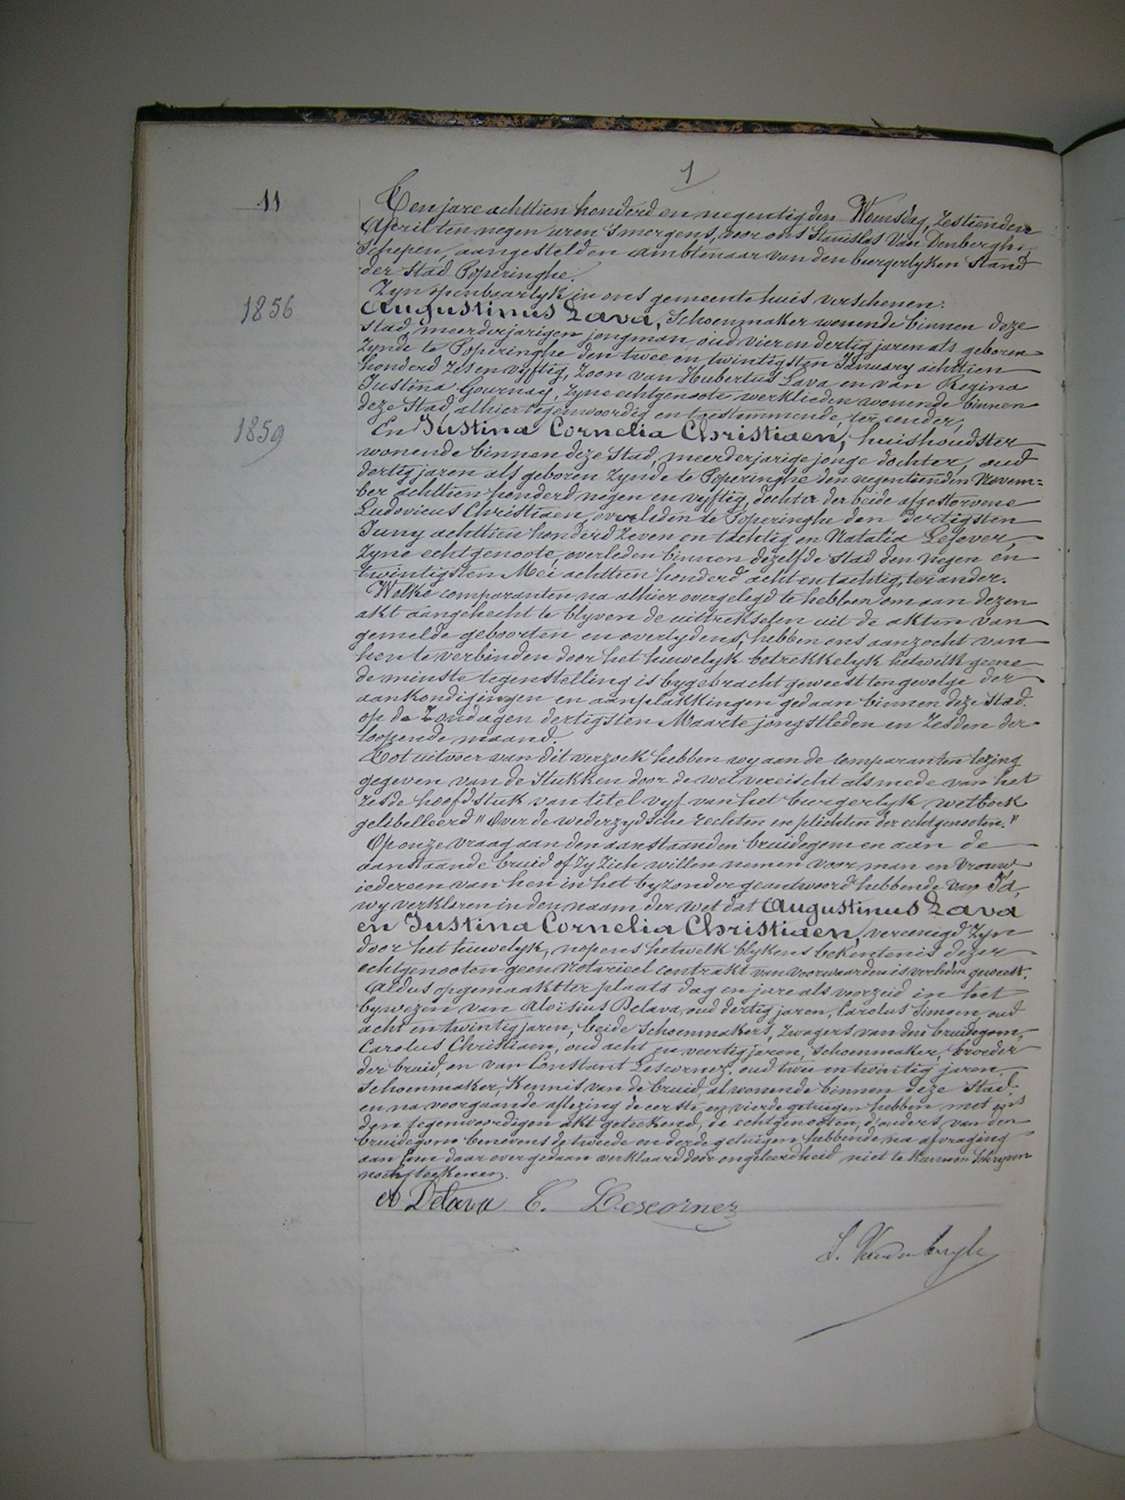 1
11
Ten jare achttien honderd en negentig den Woensdag, zestienden
April ten negen uren smorgens, voor ons Stanislas Van Denberghe,
Schepen, aangestelden ambtenaar van den burgerlyken Stand
der Stad Poperinghe.
Zyn openbaarlyk in ons gemeentehuis verschenen:
1856
Augustinus Lava, Schoenmaker wonende binnen deze
Stad, meerderjarigen jongman, oud vier en dertig jaren als geboren
Zynde te Poperinghe den twee en twintigsten January achttien
honderd Zes en vyftig, Zoon van Hubertus Lava en van Regina
Justina Gournay, Zyne echtgenoote werklieden wonende binnen
deze Stad, alhier tegenwoordig en toestemmende, ter eender,
1859
En Justina Cornelia Christiaen, huishoudster
wonende binnen deze Stad, meerderjarige jonge dochter, oud
dertig jaren als geboren Zynde te Poperinghe den negentienden Novem=
ber achttien honderd negen en vyftig, dochter der beide afgestorvene
Ludovicus Christiaen, overleden te Poperinghe den dertigsten
Juny achttien honderd Zeven en tachtig en Natalia Lefever,
Zyne echtgenoote, overleden binnen dezelfde Stad den negen en
twintigsten Mei achttien honderd acht en tachtig, ter ander.
Welke comparanten na alhier overgelegd te hebben om aan dezen
akt aangehecht te blyven de uittrekselen uit de akten van
gemelde geboorten en overlydens, hebben ons aanzocht van
hen te verbinden door het huwelyk betrekkelyk hetwelk geene
de minste tegenstelling is bygebracht geweest ten gevolge der
aankondigingen en aanplakkingen gedaan binnen deze Stad
op de Zondagen dertigsten Maarte jongstleden en Zesden der
loopende maand.
Tot uitvoer van dit verzoek hebben wy aan de comparanten lezing
gegeven van de Stukken door de wet vereischt alsmede van het
Zesde hoofdstuk van titel vyf van het burgerlyk wetboek
gelibelleerd "Over de wederzydsche rechten en plichten der echtgenooten."
Op onze vraag aan den aanstaanden bruidegom en aan de
aanstaande bruid of Zy Zich willen nemen voor man en vrouw
iedereen van hen in het byzonder geantwoord hebbende van Ja,
wy verklaren in den naam der wet dat Augustinus Lava
en Justina Cornelia Christiaen, vereenigd Zyn
door het huwelyk, nopens hetwelk blykens bekentenis dezer
echtgenooten geen notarieel contrakt van voorwaarden is verleden geweest.
Aldus opgemaakt ter plaats dag en jare als voorzeid in het
bywezen van Aloïsius Delava, oud dertig jaren, Carolus Simoen, oud
acht en twintig jaren, beide Schoenmakers, Zwagers van den bruidegom,
Carolus Christiaen, oud acht en veertig jaren, Schoenmaker, broeder
der bruid, en van Constant Lescornez, oud twee en twintig jaren,
Schoenmaker, Kennis van de bruid, al wonende binnen deze Stad,
en na voorgaande aflezing de eerste en vierde getuigen hebben met ons
den tegenwoordigen akt geteekend, de echtgenooten, d'ouders van den
bruidegom benevens de tweede en derde getuigen hebbende na afvraging
aan hun daar over gedaan verklaard door ongeleerdheid niet te kunnen Schryven
noch teekenen.
Delava C. Lescornez
S. Vandenberghe